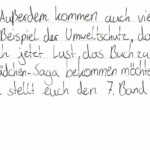 Außerdem kommen auch vie
Beispiel der Umweltschutz, da
h jetzt Lust, das Buch zu
ädchen-Saga bekommen möchte
stellt euch den 7. Band